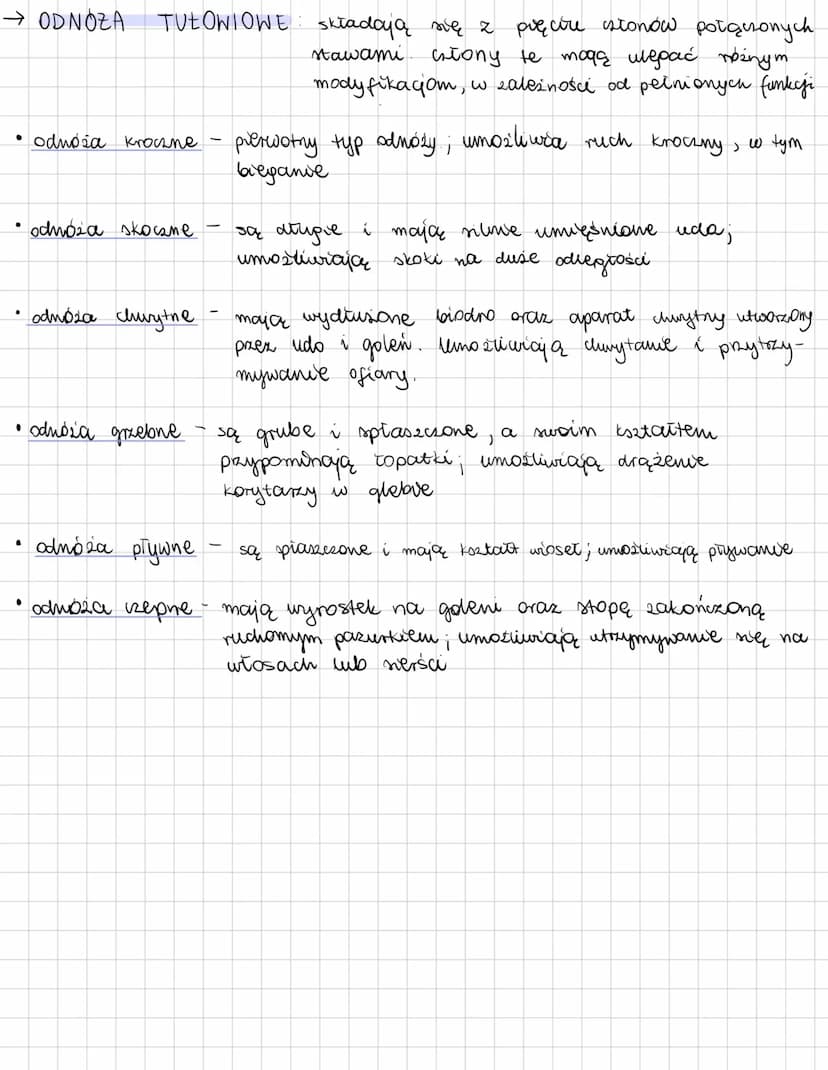 → ODNÓŻA TUŁOWIOWE: składają się z pięciu członów połączonych
stawami. człony te mogą ulegać różnym
modyfikacjom, w zależności od pełnionych funkcji
• odnóża kroczne – pierwotny typ odnóży; umożliwia ruch kroczny, w tym
bieganie
• odnóża skoczne – są długie i mają silnie umięśnione uda;
umożliwiają skoki na duże odległości
• odnóża chwytne – mają wydłużone biodro oraz aparat chwytny utworzony
przez udo i goleń. Umożliwiają chwytanie i przytrzy-
mywanie ofiary.
• odnóża grzebne – są grube i spłaszczone, a swoim kształtem
przypominają łopatki; umożliwiają drążenie
korytarzy w glebie
• odnóża pływne – są spłaszczone i mają kształt wioseł; umożliwiają pływanie
• odnóża czepne – mają wyrostek na goleni oraz stopę zakończoną
ruchomym pazurkiem; umożliwiają utrzymywanie się na
włosach lub sierści